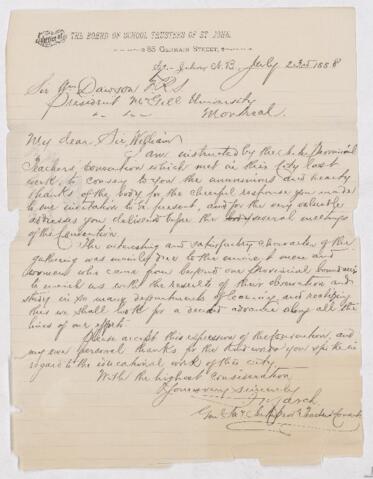 Office of THE BOARD OF SCHOOL TRUSTEES OF ST. JOHN,
85 GERMAIN STREET,
St. John N.B. July 23rd 1888
Sir Wm Dawson F.R.S
President McGill University
Montreal.
My dear Sir William
I am instructed by the Provincial
Teachers Convention which met in this City last
week, to convey to you the unanimous and hearty
thanks of the body for the cheerful response you made
to our invitation to be present, and for the very valuable
addresses you delivered before the several meetings
of the Convention.
The interesting and satisfactory character of the
gathering was mainly due to the eminent men and
women who came from beyond our Provincial boundaries
to enrich us with the results of their observation and
study in so many departments of learning and
this we shall look for a decided advance along all the
lines of our efforts.
Please accept this expression of the Convention, and
my own personal thanks for the kind words you spoke in
regard to the educational work of this city.
With the highest consideration
Yours very sincerely
March